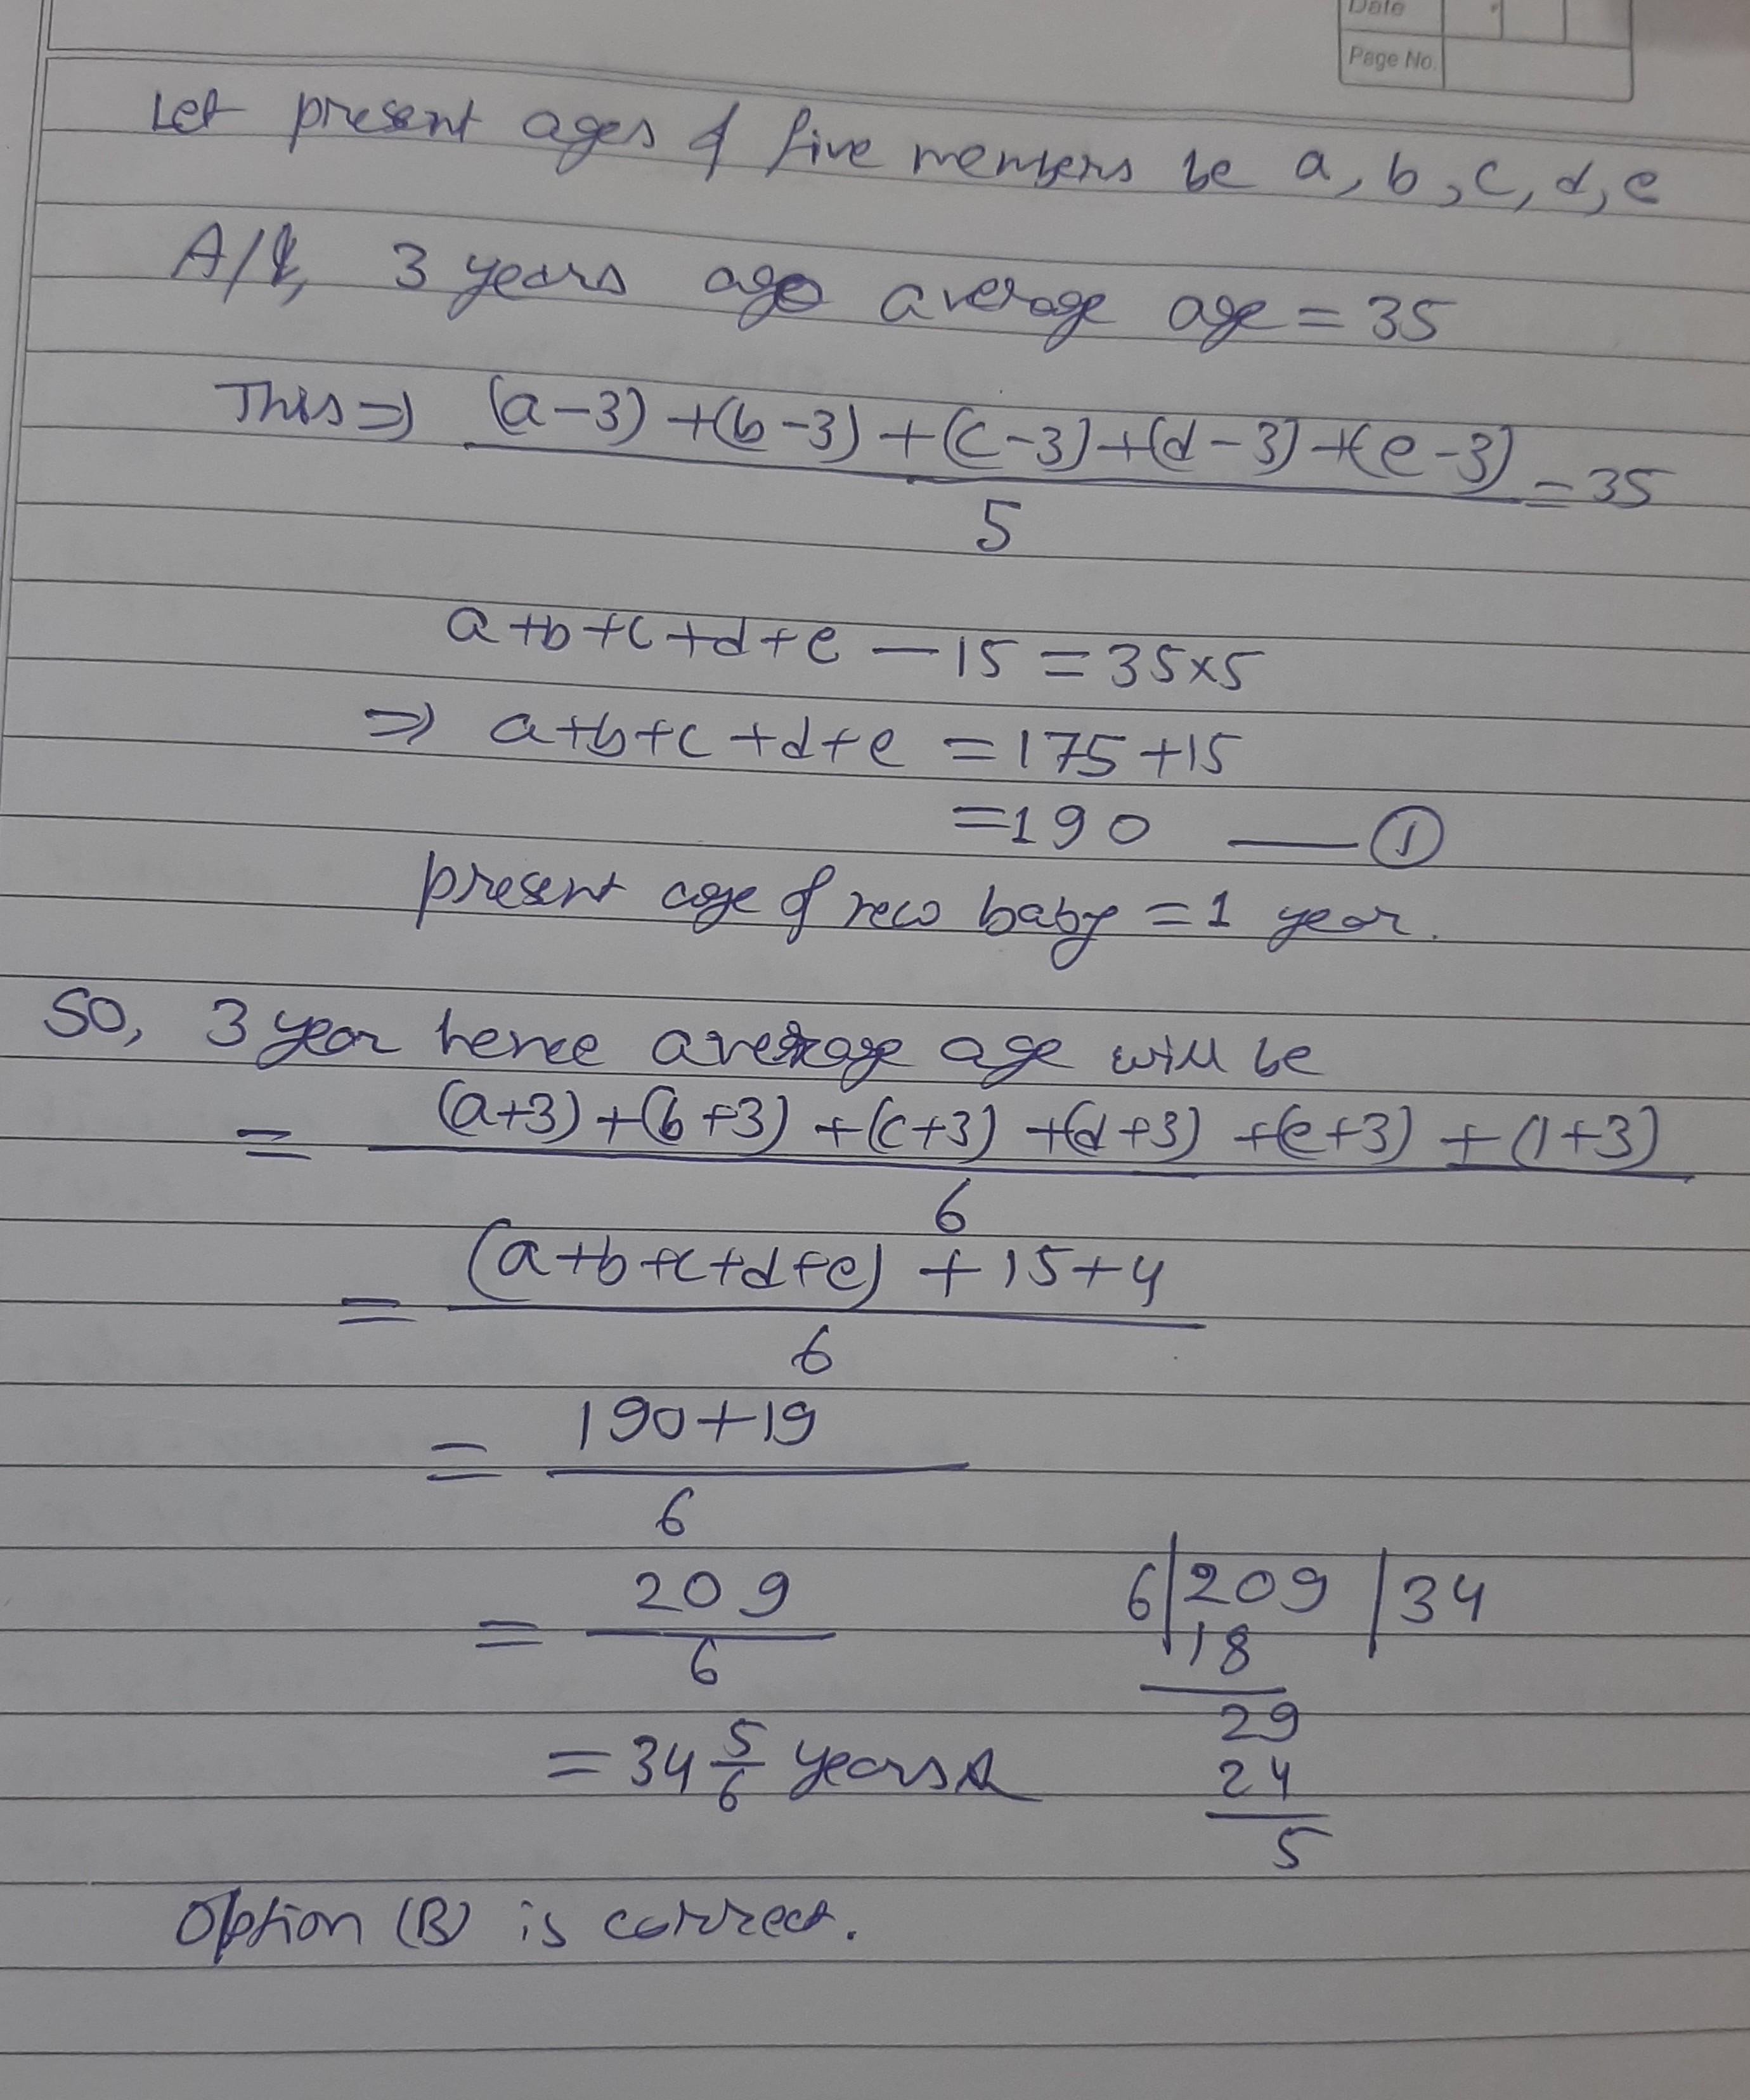 Date
Page No.
Let present ages of five members be a, b, c, d, e
A/Q, 3 years ago average age = 35
This ⇒ (a-3) + (b-3) + (c-3) + (d-3) + (e-3) = 35
5
a+b+c+d+e - 15 = 35×5
⇒ a+b+c+d+e = 175+15
=190 — ①
present age of new baby = 1 year.
SO, 3 year hence average age will be
= (a+3) + (b+3) + (c+3) + (d+3) + (e+3) + (1+3)
6
= (a+b+c+d+e) + 15+4
6
= 190+19
6
= 209
6
6|209|34
18
29
24
5
= 34 5/6 years
Option (B) is correct.